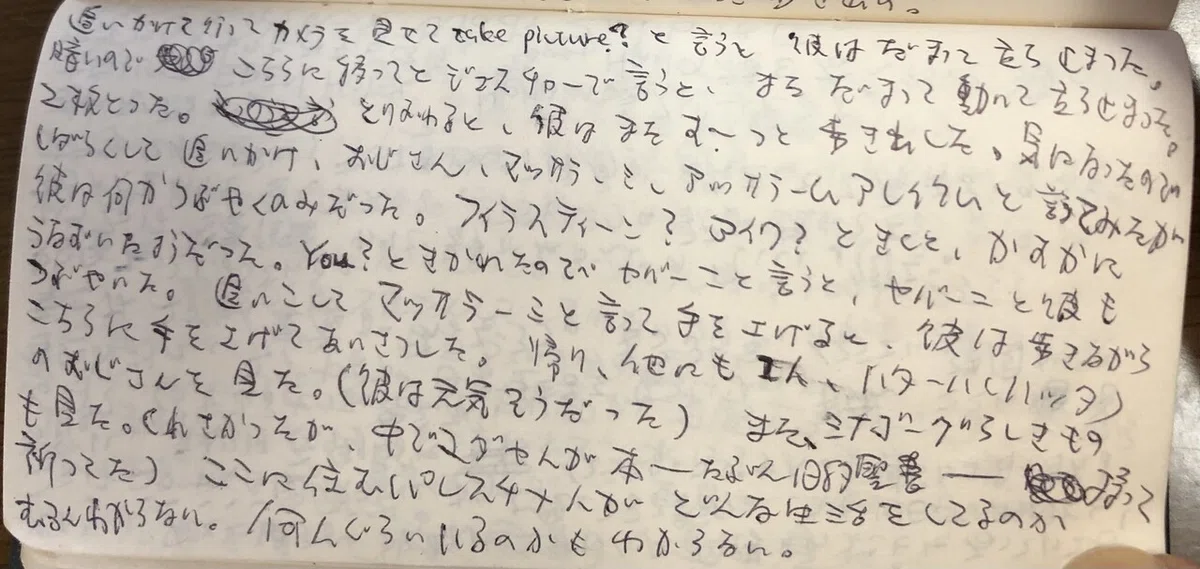 追いかけて行ってカメラを見せて take picture? と言うと 彼はだまって立ち止まった。
暗いので こちらに移ってとジェスチャーで言うと、まただまって動いて立ち止まった。
2枚とった。 とりおわると、彼はまたす〜っと歩きだした。気になったので
しばらくして追いかけ、おじさん、マッサラーミ、アッサラームアレイクムと言ってみたが
彼は何かつぶやくのみだった。フィラスティーン?アイワ?ときくと、かすかに
うなずいたようだった。You?ときかれたのでヤバーニと言うと、ヤバーニと彼も
つぶやいた。追いこしてマッサラーミと言って手を上げると、彼は歩きながら
こちらに手を上げてあいさつした。帰り、他にも1人、バターハ(ハッタ)
のおじさんを見た。(彼は元気そうだった) また、シナゴーグらしきもの
も見た。(れさかったが、中で がせんが本―たぶん旧約聖書― 持って
祈ってた) ここに住むパレスチナ人がどんな生活をしてるのか
わからない。何人ぐらいいるのかもわからない。